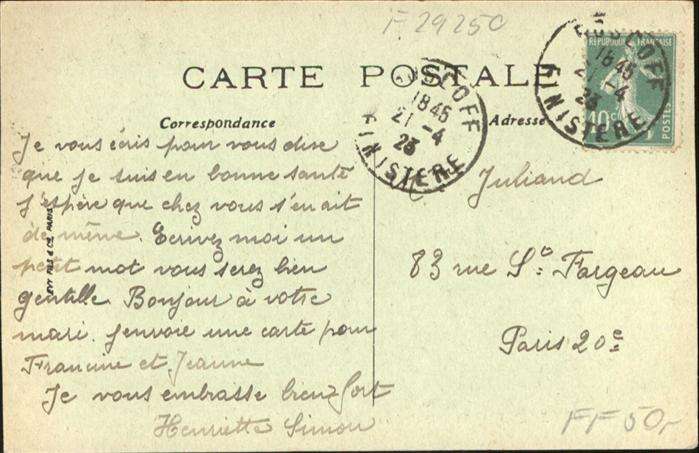 F 29250
CARTE POSTALE
Correspondance
Adresse
ROSCOFF
18 45
21 - 4
23
FINISTERE
ROSCOFF
18 45
21 - 4
23
FINISTERE
REPUBLIQUE FRANÇAISE
10c
Je vous écris pour vous dire
que je suis en bonne santé
J'espère que chez vous s'en ait
de même. Ecrivez moi un
petit mot vous serez bien
gentille Bonjour à votre
mari. J'envoie une carte pour
Francine et Jeanne
Je vous embrasse bien fort
Henriette Simon
LEVY FILS & Cie, PARIS
Juliand
83 rue St Fargeau
Paris 20e
FF 50,-